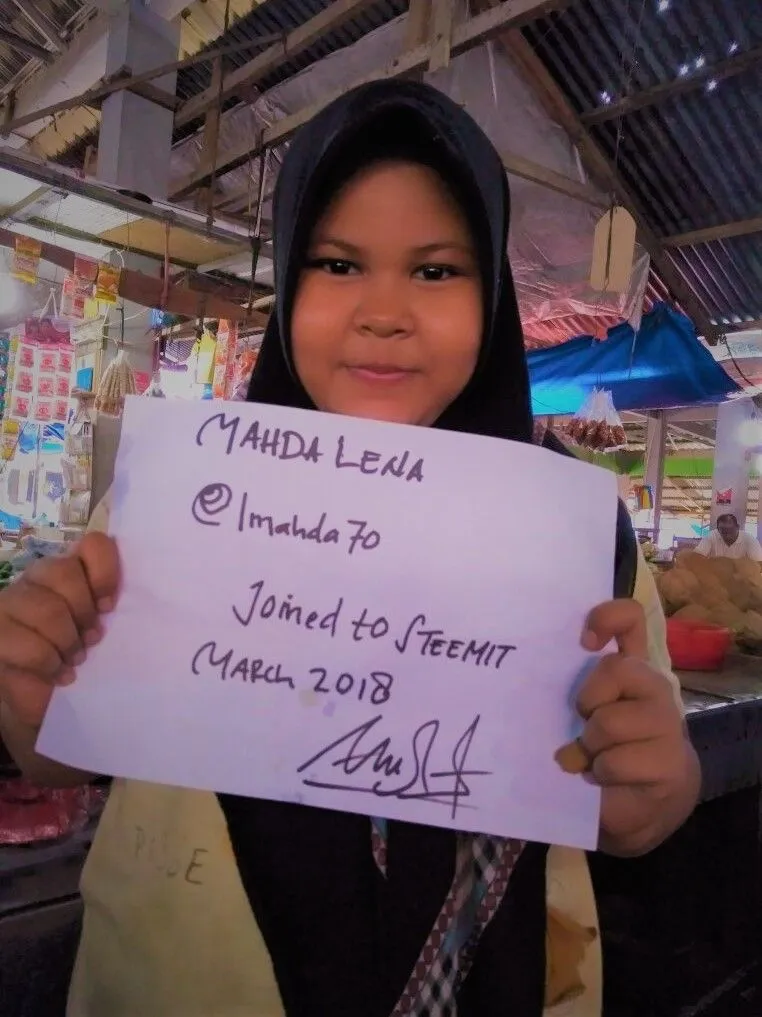 MAHDA LENA
@lmahda70
Joined to STEEMIT
MARCH 2018